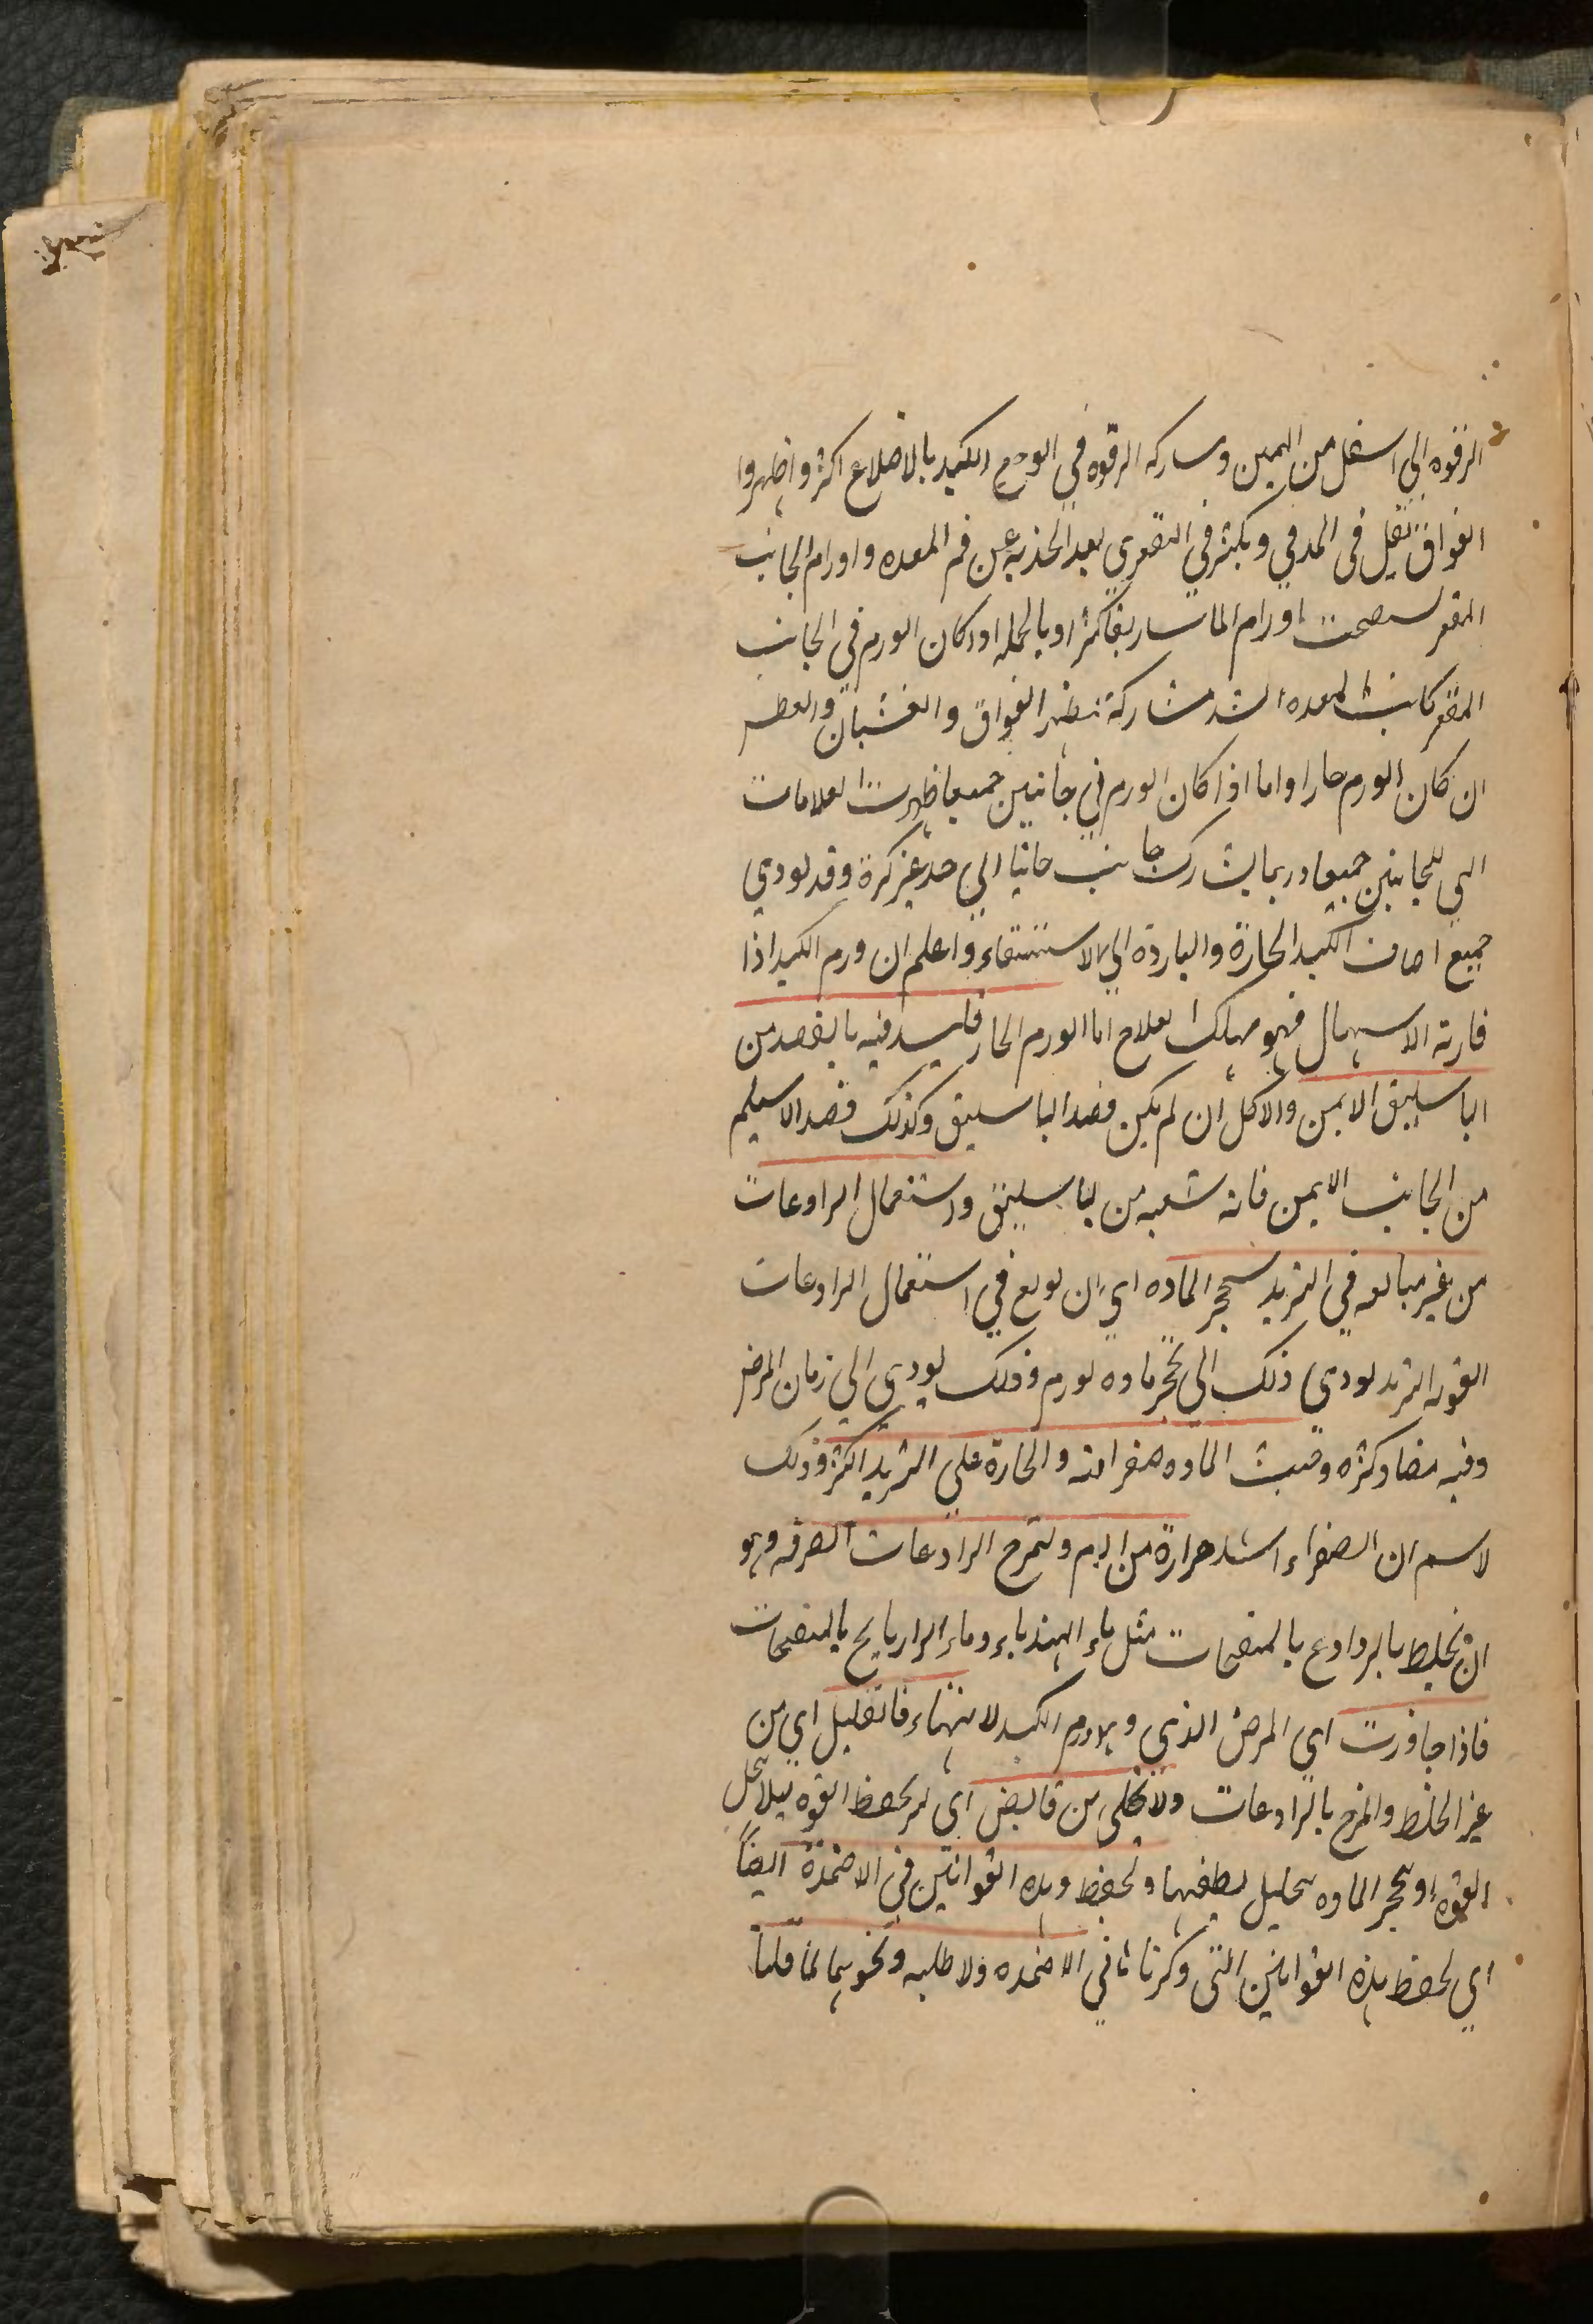 الرقوه الي اسفل من اليمين ومساركه الرقوه في الوجع الكبد بالاضلاع اكثر واظهروا
الفواق تقيل في المدفي ويكثر في التقعري لبعد الحذبه عن فم المعده واورام الجانب
المقعر اورام الماساريقا كثر او بالجمله اذا كان الورم في الجانب
المقعر كانت المعده اشد مشاركة فيظهر الفواق والغشيان والعطر
ان كان الورم حارا واما اذا كان الورم في جانبين جميعا ظهرت العلامات
التي للجانبين جميعا وربما يشارك جانب جانبا الي حد غير كرة وقد لودي
جميع اصاف الكبد الحارة والباردة الي الاستسقاء واعلم ان ورم الكبد اذا
قارنه الاسهال فهو مهلك العلاج اما الورم الحار فليبد فيه بالفصد من
الباسليق الايمن والاكحل ان لم يكن فصد الباسليق وكذلك فصد الاسيلم
من الجانب الايمن فانه شعبه من الباسليق واستعمال الراوعات
من غير مبالغه في التبريد المادة اي ان لوبع في استعمال الرادعات
القويه التبريد لودي ذلك الي تحجر ماده لورم وذلك يودي الي زمان المرض
وفيه مضار كثره وقيت الماده صفراية والحارة علي التبريد اكثر وذلك
لاسم ان الصفراء اشد حرارة من الدم ولتمزج الرادعات الصرفه وهو
ان تخلط بالروادع بالمنضجات مثل ماء الهندباء وماء الرازيانج بالمنضجات
فاذا جاوزت اي المرض الذي وهو ورم الكبد لانتهاء فالتقليل اي من
غير الخلط والمزج بالرادعات ولا تخلي من قابض اي لم يحفظ القوه ليلا تحل
القوه او تحجر الماده بتحليل لطفها وتحفظ وهذه القوانين في الاضمدة ايضا
اي تحفظ هذه القوانين التي ذكرناها في الاضمده ولا طليه ونحوهما لما قلنا